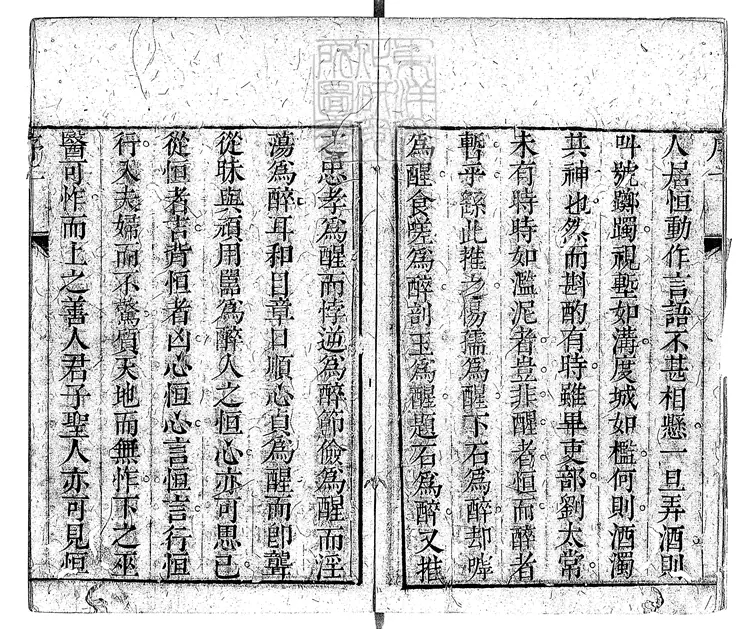 人居恒動作言語不甚相懸一旦弄酒則
叫號躑躅視塹如溝度城如檻何則酒濁
其神也然而斟酌有時雖畢吏部劉太常
未有時時如濫泥者豈非醒者恒而醉者
暫乎繇此推之惕孺為醒下石為醉却嘑
為醒食嗟為醉剖玉為醒題石為醉又推
之忠孝為醒而悖逆為醉節儉為醒而淫
蕩為醉耳和目章口順心貞為醒而即聾
從昧與頑用嚚為醉人之恒心亦可思已
從恒者吉背恒者凶心恒心言恒言行恒
行入夫婦而不驚質天地而無怍下之巫
醫可怍而上之善人君子聖人亦可見恒